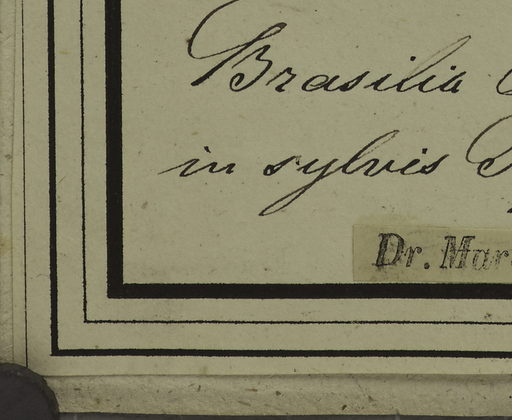 Brasilia
in sylvis
Dr. Mar